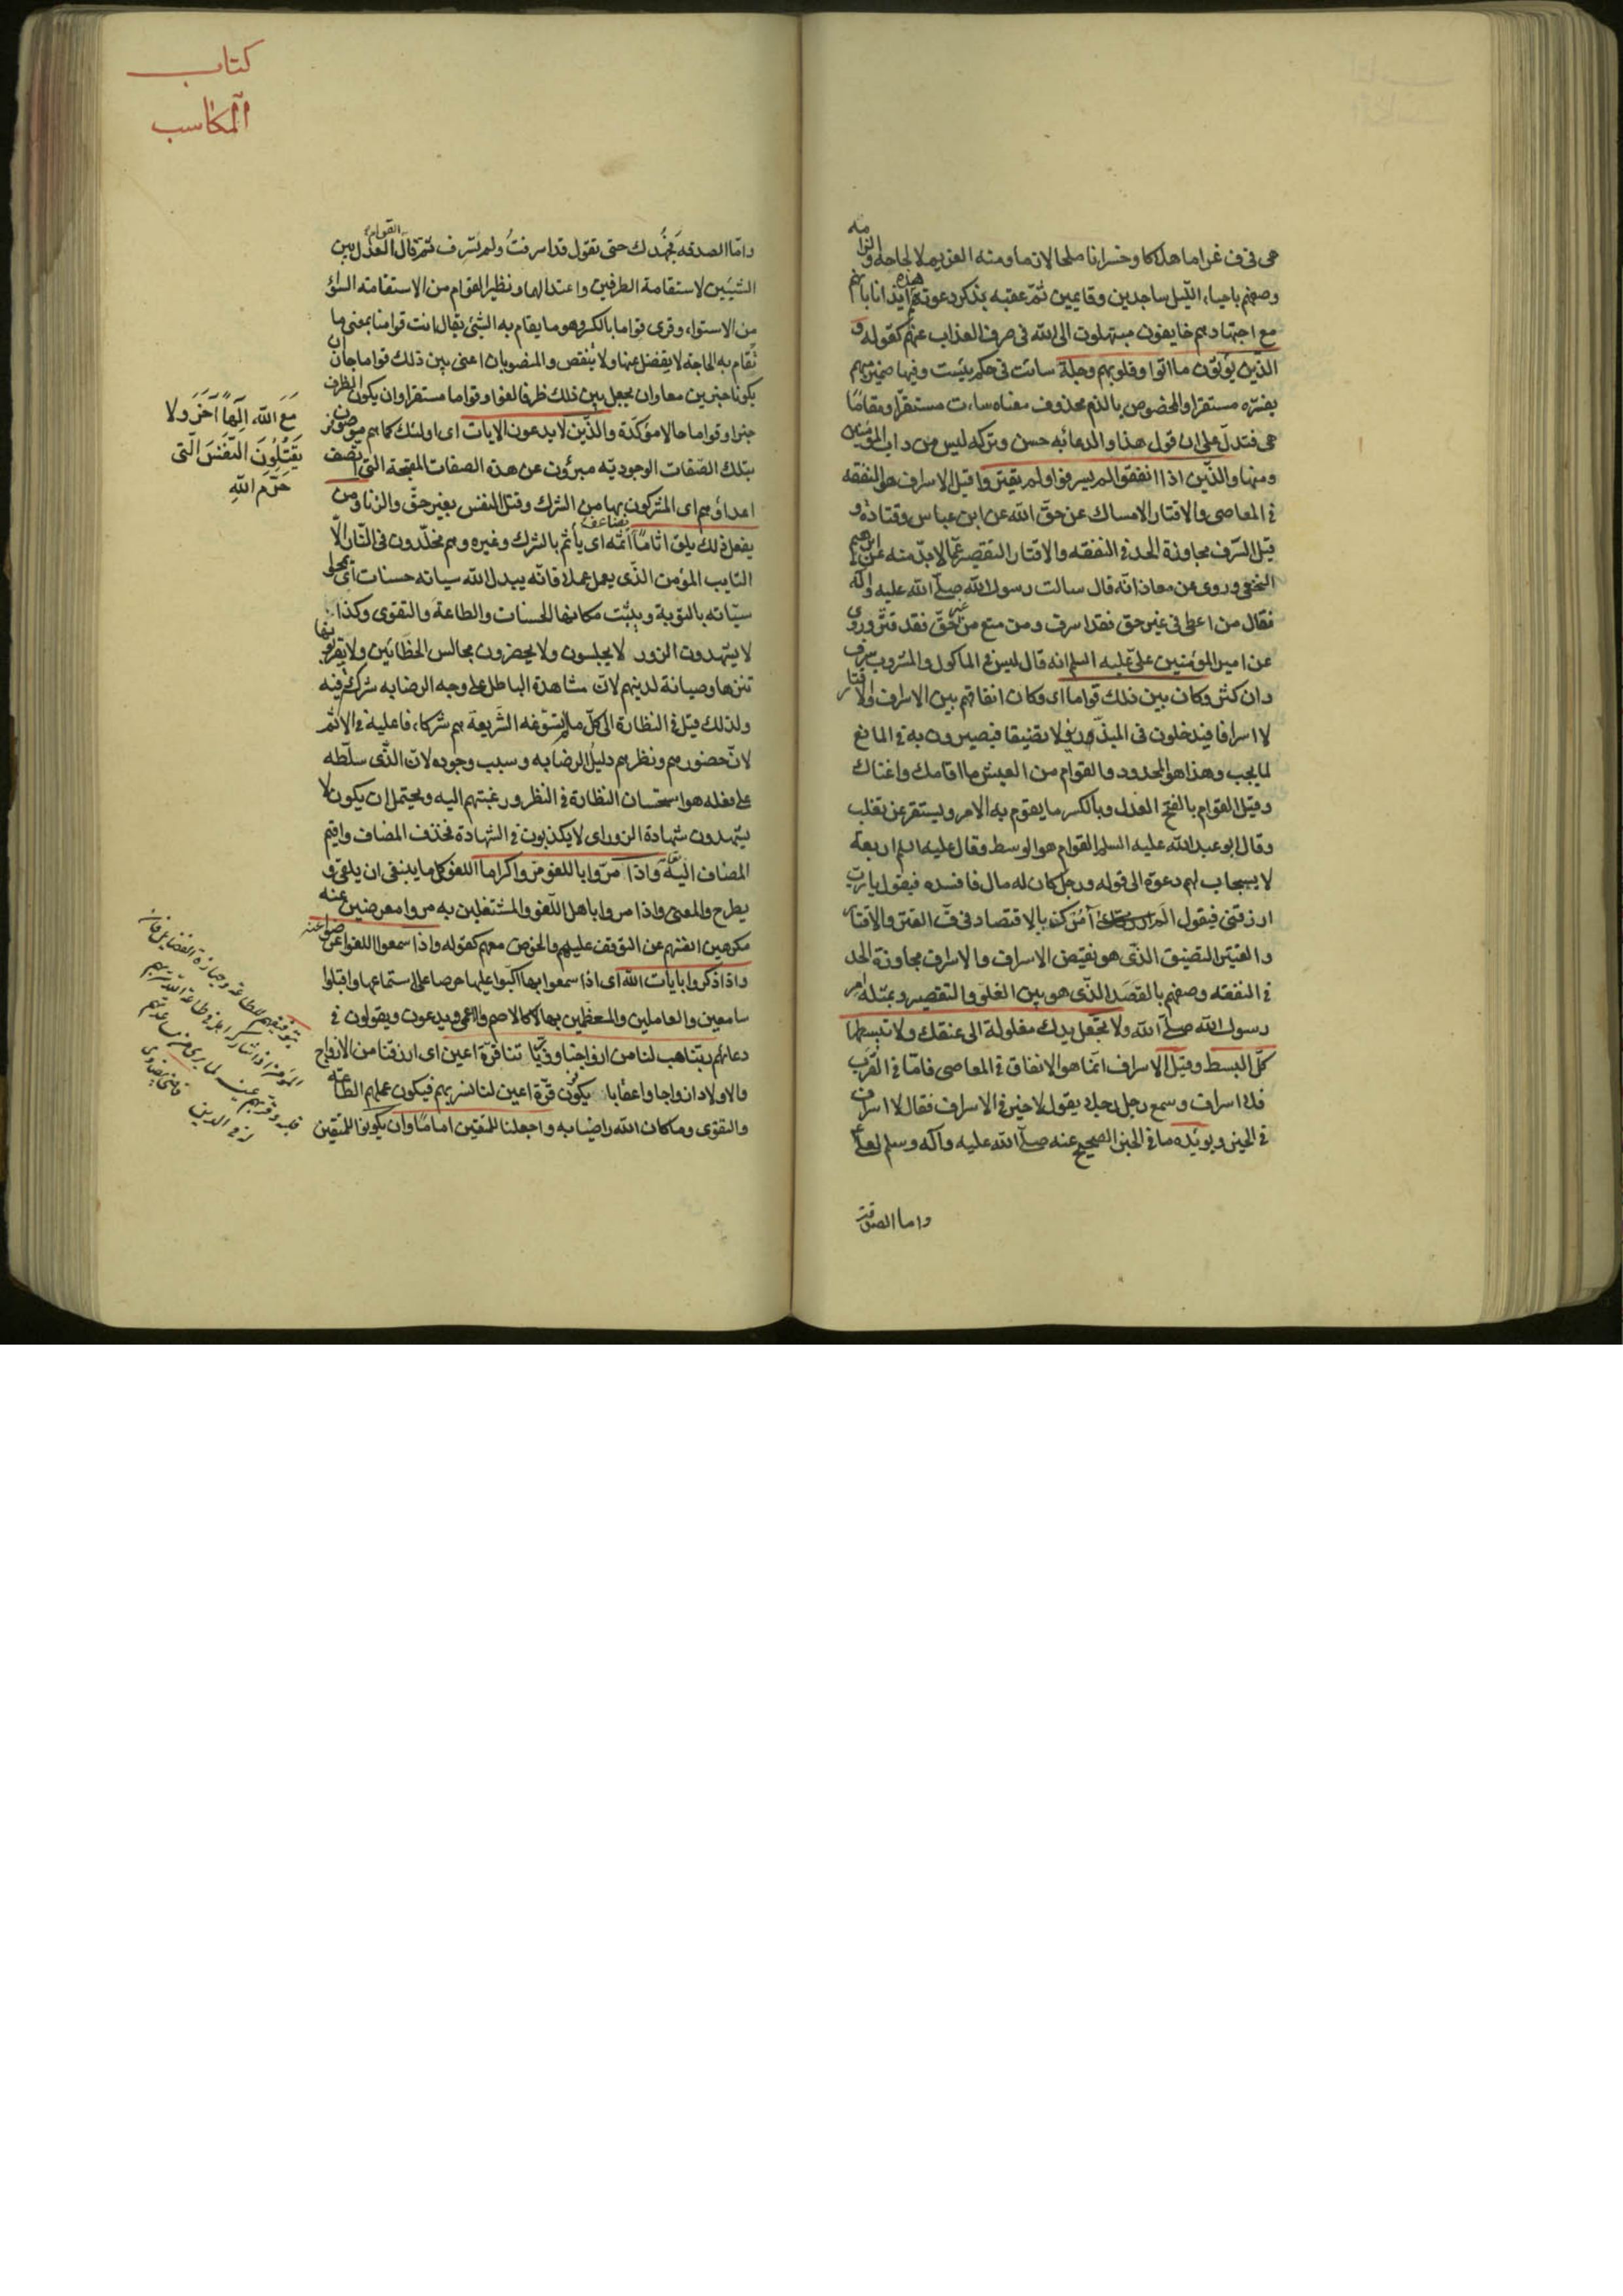 هى فى ف غراما هلاكا وخسرانا ملحا لازما ومنه الغريم لالحاحه والزامه
وصفهم باحياء الليل ساجدين وقايمين ثم عقبه بذكر دعوتهم هذه ايذانا بانهم
مع اجتهادهم خايفون مبتهلون الى الله فى صرف العذاب عنهم كقوله و
الذين يؤتون ما اتوا وقلوبهم وجلة ساءت فى حكم بئست وفيها ضمير مبهم
يفسره مستقرا والمخصوص بالذم محذوف معناه ساءت مستقرا ومقاما
هى فتدل على ان قول هذا والدعا به حسن وتركه ليس من داب المؤمنين
ومنها والذين اذا انفقوا لم يسرفوا ولم يقتروا قيل الاسراف هو النفقه
فى المعاصى والاقتار الامساك عن حق الله عن ابن عباس وقتاده و
قيل السرف مجاوزة الحد فى النفقه والاقتار التقصير عما لابد منه عن ابرهيم
النخعى وروى عن معاذ انه قال سالت رسول الله صلى الله عليه واله
فقال من اعطى فى غير حق فقد اسرف ومن منع من غير حق فقد قتر وروى
عن امير المؤمنين على عليه السلم انه قال ليس فى الماكول والمشروب سرف
وان كثر وكان بين ذلك قواما اى وكان انفاقهم بين الاسراف والاقتار
لا اسرافا فيدخلون فى المبذرين ولا تضييقا فيصيرون به فى المانع
لما يجب وهذا هو المحدود والقوام من العيش ما اقامك واغناك
وقيل القوام بالفتح العدل وبالكسر ما يقوم به الامر ويستقر عن تغلب
وقال ابو عبد الله عليه السلم القوام هو الوسط وقال عليه السلم اربعة
لا يستجاب لهم دعوة الى قوله ورجل كان له مال فافسده فيقول يا رب
ارزقنى فيقول الم آمرك بالاقتصاد فى ف القتر والاقتار
والقتير التضييق الذى هو نقيض الاسراف والاسراف مجاوزة الحد
فى النفقه وصفهم بالقصد الذى هو بين الغلو والتقصير وبمثله امر
رسول الله صلى الله ولا تجعل يدك مغلولة الى عنقك ولا تبسطها
كل البسط وقيل الاسراف انما هو الانفاق فى المعاصى فاما فى القرب
فلا اسراف وسمع رجل رجلا يقول لا خير فى الاسراف فقال لا اسراف
فى الخير ويؤيده ما فى الخبر الصحيح عنه صلى الله عليه وآله وسلم لعلى
واما الصدقة
كتاب
المكاسب
واما الصدقه فجهدك حتى تقول قد اسرفت ولم تسرف ثم قال القوام العدل بين
الشيئين لاستقامة الطرفين واعتدالهما ونظير القوام من الاستقامه السواء
من الاستواء وقرى قواما بالكسر وهو ما يقام به الشئ يقال انت قوامنا بمعنى ما
تقام به الحاجة لا يفضل عنها ولا ينقص والمنصوبان اعنى بين ذلك قواما جاز ان
يكونا خبرين معا وان يجعل بين ذلك ظرفا لغوا وقواما مستقرا وان يكون الظرف
خبرا وقواما حالا مؤكدة والذين لا يدعون الايات اى اولئك كما هم موصوفون
بتلك الصفات الوجودية مبرؤن عن هذه الصفات القبيحة التى تتصف
مع الله الها آخر ولا
يقتلون النفس التى
حرم الله
اعداؤهم اى المشركون بها من الشرك وقتل النفس بغير حق والزنا ومن
يفعل ذلك يلق اثاما يضاعف اثمه اى يأثم بالشرك وغيره وهم مخلدون فى النار الا
التايب المؤمن الذى يعمل عملا فانه يبدل الله سياته حسنات اى يمحى
سيئاته بالتوبة ويثبت مكانها الحسنات والطاعة والتقوى وكذا
لا يشهدون الزور لا يجلسون ولا يحضرون مجالس الخطائين ولا يقربونها
تنزها وصيانة لدينهم لان مشاهدة الباطل على وجه الرضا به شرك فيه
ولذلك قيل فى النظارة الى كل ما لم تسوغه الشريعة هم شركاء فاعليه فى الاثم
لان حضورهم ونظرهم دليل الرضا به وسبب وجوده لان الذى سلطه
على فعله هو استحسان النظارة فى النظر ورغبتهم اليه ويحتمل ان يكون لا
يشهدون شهادة الزور اى لا يكذبون فى الشهادة فحذف المضاف واقيم
المضاف اليه مقامه واذا مروا باللغو مروا كراما اللغو كل ما ينبغى ان يلقى و
يطرح والمعنى واذا مروا باهل اللغو والمشتغلين به مروا معرضين عنه
مكرمين انفسهم عن التوقف عليهم والخوض معهم كقوله واذا سمعوا اللغو اعرضوا عنه
واذا ذكروا بايات الله اى اذا سمعوا بها اكبوا عليها حرصا على استماعها واقبلوا
سامعين والعاملين والمعظمين بها لا كالاصم والاعمى ويدعون ويقولون فى
دعائهم ربنا هب لنا من ازواجنا وذرياتنا قرة اعين اى ارزقنا من الازواج
والاولاد ازواجا واعقابا يكون قرة اعين لنا نسر بهم فيكون عملهم الطاعة
والتقوى وما كان الله راضيا به واجعلنا للمتقين اماما وان يكونوا للمتقين
بتوفيقهم للطاعة وحيازة الفضايل فان
المؤمن اذا شاركه اهله فى طاعة الله سر بهم
قلبه وقر بهم عينه لما يرى من مساعدتهم
له فى الدين قاضى بيضاوى